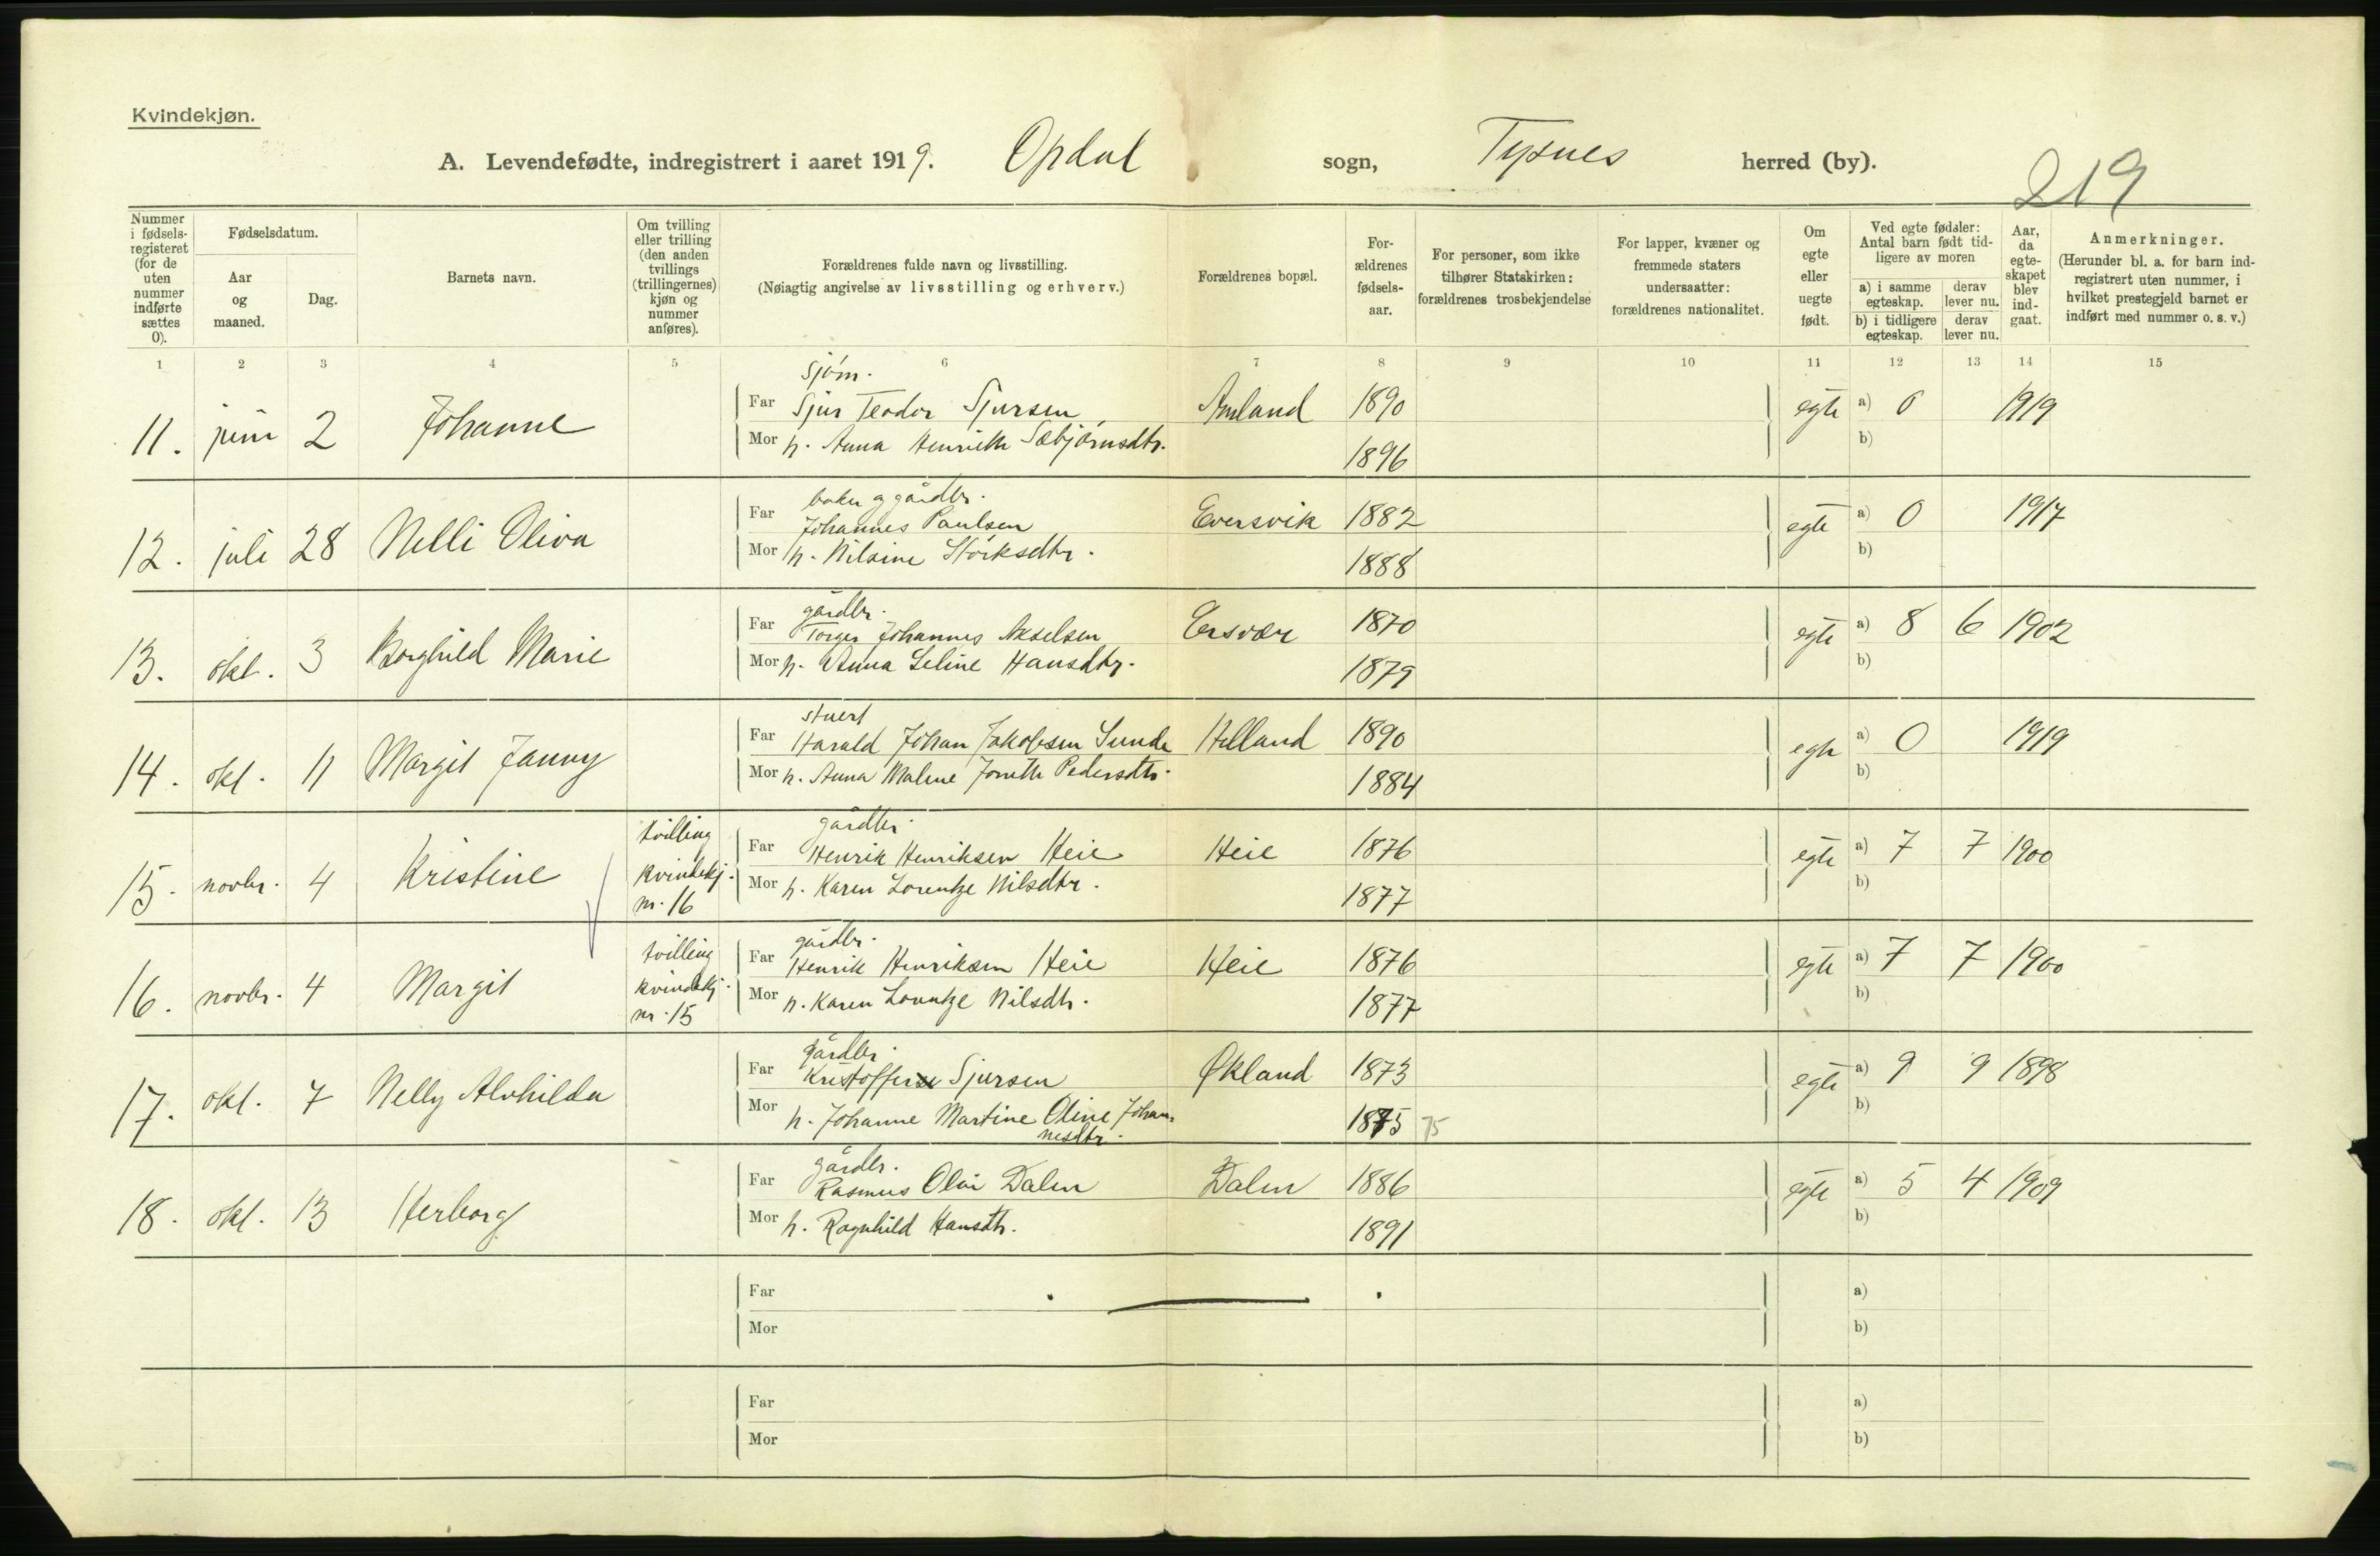 Kvindekjøn.
A. Levendefødte, indregistrert i aaret 1919. Opdal sogn, Tysnes herred (by).
219
Nummer i fødsels-registeret (for de uten nummer indførte sættes 0).
Fødselsdatum.
Aar og maaned.
Dag.
Barnets navn.
Om tvilling eller trilling (den anden tvillings (trillingernes) kjøn og nummer anføres).
Forældrenes fulde navn og livsstilling.
(Nøiagtig angivelse av livsstilling og erhverv.)
Forældrenes bopæl.
For-ældrenes fødsels-aar.
For personer, som ikke tilhører Statskirken: forældrenes trosbekjendelse
For lapper, kvæner og fremmede staters undersaatter: forældrenes nationalitet.
Om egte eller uegte født.
Ved egte fødsler: Antal barn født tid-ligere av moren
a) i samme egteskap.
derav lever nu.
b) i tidligere egteskap.
derav lever nu.
Aar, da egte-skapet blev ind-gaat.
Anmerkninger.
(Herunder bl. a. for barn ind-registrert uten nummer, i hvilket prestegjeld barnet er indført med nummer o. s. v.)
1 2 3 4 5 6 7 8 9 10 11 12 13 14 15
sjøm.
11. juni 2 Johanne Far Sjur Teodor Sjursen Amland 1890 egte a) 0 1919
Mor h. Anna Henriette Sæbjørnsdtr. 1896 b)
baker og gårdbr.
12. juli 28 Nelli Oliva Far Johannes Paulsen Eversvik 1882 egte a) 0 1917
Mor h. Nilsine Størksdtr. 1888 b)
gårdbr.
13. okt. 3 Borghild Marie Far Torger Johannes Akselsen Ersvær 1870 egte a) 8 6 1902
Mor h. Anna Seline Hansdtr. 1879 b)
stuert
14. okt. 11 Margit Janny Far Harald Johan Jakobsen Sunde Helland 1890 egte a) 0 1919
Mor h. Anna Malene Pedersdtr. 1884 b)
gårdbr.
15. novbr. 4 Kristine tvilling kvindekj. nr. 16 Far Henrik Henriksen Heie Heie 1876 egte a) 7 7 1900
Mor h. Karen Lorentze Nilsdtr. 1877 b)
gårdbr.
16. novbr. 4 Margit tvilling kvindekj. nr. 15 Far Henrik Henriksen Heie Heie 1876 egte a) 7 7 1900
Mor h. Karen Lorentze Nilsdtr. 1877 b)
gårdbr.
17. okt. 7 Nelly Alvhilda Far Kristoffer Sjursen Økland 1873 egte a) 9 9 1898
Mor h. Johanne Martine Oline Johan- 1875 75 b)
nesdtr.
gårdbr.
18. okt. 13 Herborg Far Rasmus Olai Dalen Dalen 1886 egte a) 5 4 1909
Mor h. Ragnhild Hansdtr. 1891 b)
Far a)
Mor b)
Far a)
Mor b)